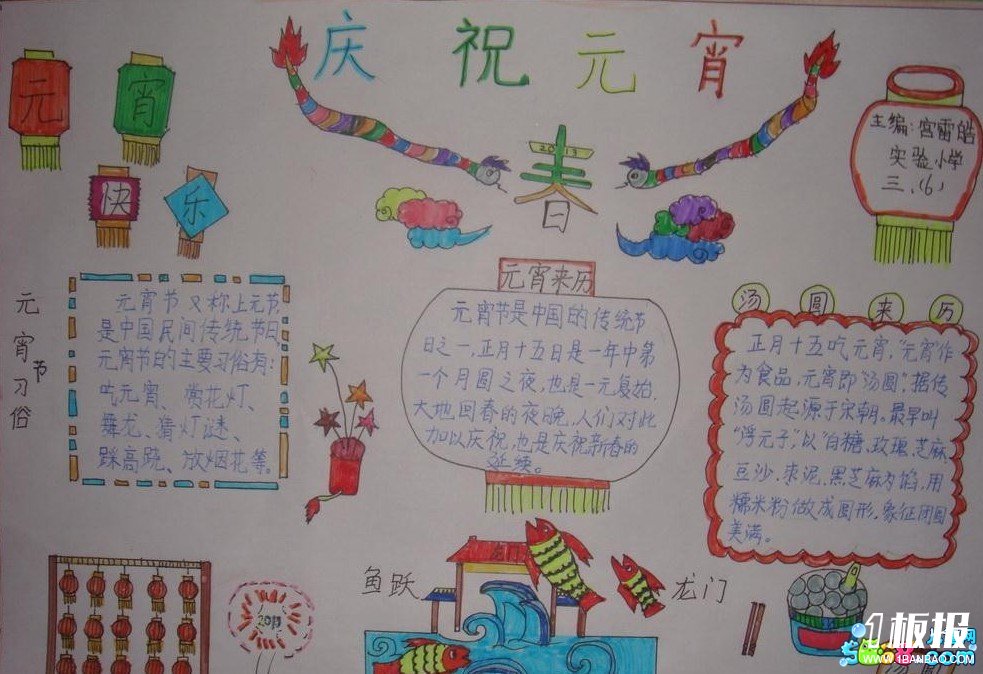 庆祝元宵
元
宵
快
乐
2013
春
主编:宫雷皓
实验小学
三.(6)
元宵节习俗
元宵节又称上元节,
是中国民间传统节日,
元宵节的主要习俗有:
吃元宵、赏花灯、
舞龙、猜灯谜、
踩高跷、放烟花等。
元宵来历
元宵节是中国的传统节
日之一,正月十五日是一年中第
一个月圆之夜,也是一元复始,
大地回春的夜晚,人们对此
加以庆祝,也是庆祝新春的
延续。
汤圆来历
正月十五吃元宵,“元宵”作
为食品,元宵即“汤圆”,据传
汤圆起源于宋朝,最早叫
“浮元子”,以“白糖、玫瑰、芝麻,
豆沙、枣泥、黑芝麻为馅,用
糯米粉做成圆形,象征团圆
美满。
鱼跃
龙门
2013
1板报
WWW.1BANBAO.COM